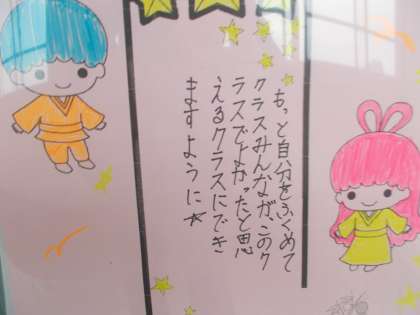 もっと自分をふくめて
クラスみんなが、このク
ラスでよかったと思
えるクラスにでき
ますように☆